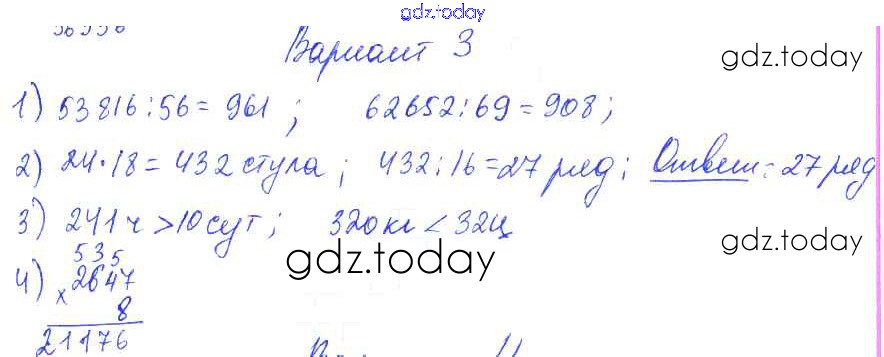 gdz.today
Вариант 3
gdz.today
1) 53816:56=961; 62652:69=908;
2) 24·18=432 стула; 432:16=27 ряд; Ответ: 27 ряд
3) 241ч>10сут; 320кг<32ц
gdz.today
gdz.today
535
4) × 2647
8
21176